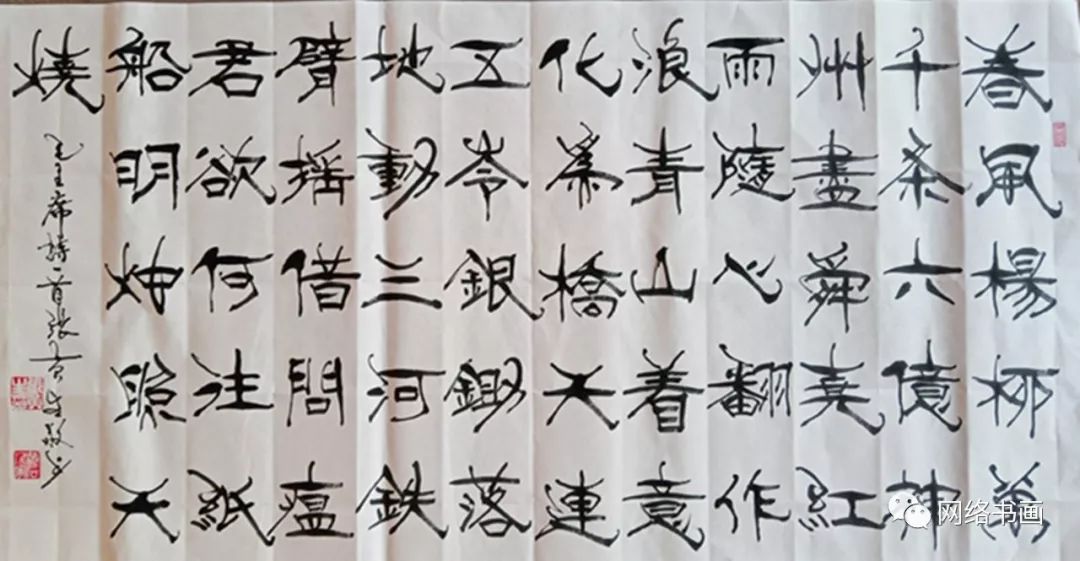 春風楊柳萬
千条六億神
州盡舜尭紅
雨隨心翻作
浪青山着意
化為橋天連
五岺銀鋤落
地動三河鉄
臂摇借問瘟
君欲何往紙
船明烛照天
燒
毛主席詩一首張生敬书
网络书画